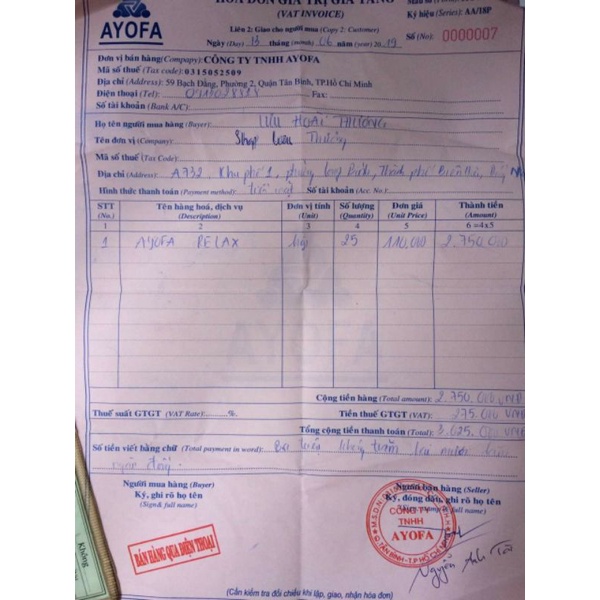 HÓA ĐƠN GIÁ TRỊ GIA TĂNG
(VAT INVOICE)
AYOFA
Liên 2: Giao cho người mua (Copy 2: Customer)
Ngày (Day) 13 tháng (month) 06 năm (year) 2019
Ký hiệu (Series): AA/18P
Số (No): 0000007
Đơn vị bán hàng (Compapy): CÔNG TY TNHH AYOFA
Mã số thuế (Tax code): 0315052509
Địa chỉ (Address): 59 Bạch Đằng, Phường 2, Quận Tân Bình, TP.Hồ Chí Minh
Điện thoại (Tel): Fax:
Số tài khoản (Bank A/C)
Họ tên người mua hàng (Buyer): LƯU HOÀI THƯƠNG
Tên đơn vị (Company): Shop Thương
Mã số thuế (Tax Code):
Địa chỉ (Address): A732, Khu phố 1, phường Long Bình, Thành phố Biên Hòa,
Hình thức thanh toán (Payment method): tiền mặt Số tài khoản (Acc No.)
STT (No.) Tên hàng hoá, dịch vụ (Description) Đơn vị tính (Unit) Số lượng (Quantity) Đơn giá (Unit Price) Thành tiền (Amount)
1 2 3 4 5 6 =4x5
1 AYOFA RELAX 25 110,000 2.750.000
Cộng tiền hàng (Total amount): 2.750.000 VNĐ
Thuế suất GTGT (VAT Rate): %. Tiền thuế GTGT (VAT): 275.000 VNĐ
Tổng cộng tiền thanh toán (Total): 3.025.000 VNĐ
Số tiền viết bằng chữ (Total payment in word): Ba triệu không trăm hai mươi lăm
ngàn đồng.
Người mua hàng (Buyer)
Ký, ghi rõ họ tên
(Sign& full name)
Người bán hàng (Seller)
Ký, đóng dấu, ghi rõ họ tên
CÔNG TY
TNHH
AYOFA
Q.TÂN BÌNH-T.P HỒ CHÍ MINH
BÁN HÀNG QUA ĐIỆN THOẠI
Nguyễn Anh
(Cần kiểm tra đối chiếu khi lập, giao, nhận hóa đơn)